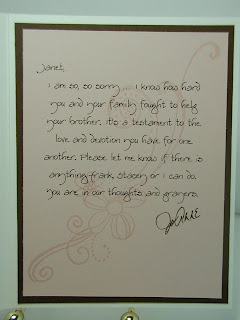 Janet,
I am so, so sorry. I know how hard
you and your family fought to help
your brother. It's a testament to the
love and devotion you have for one
another. Please let me know if there is
anything Frank, Stacey or I can do.
You are in our thoughts and prayers.